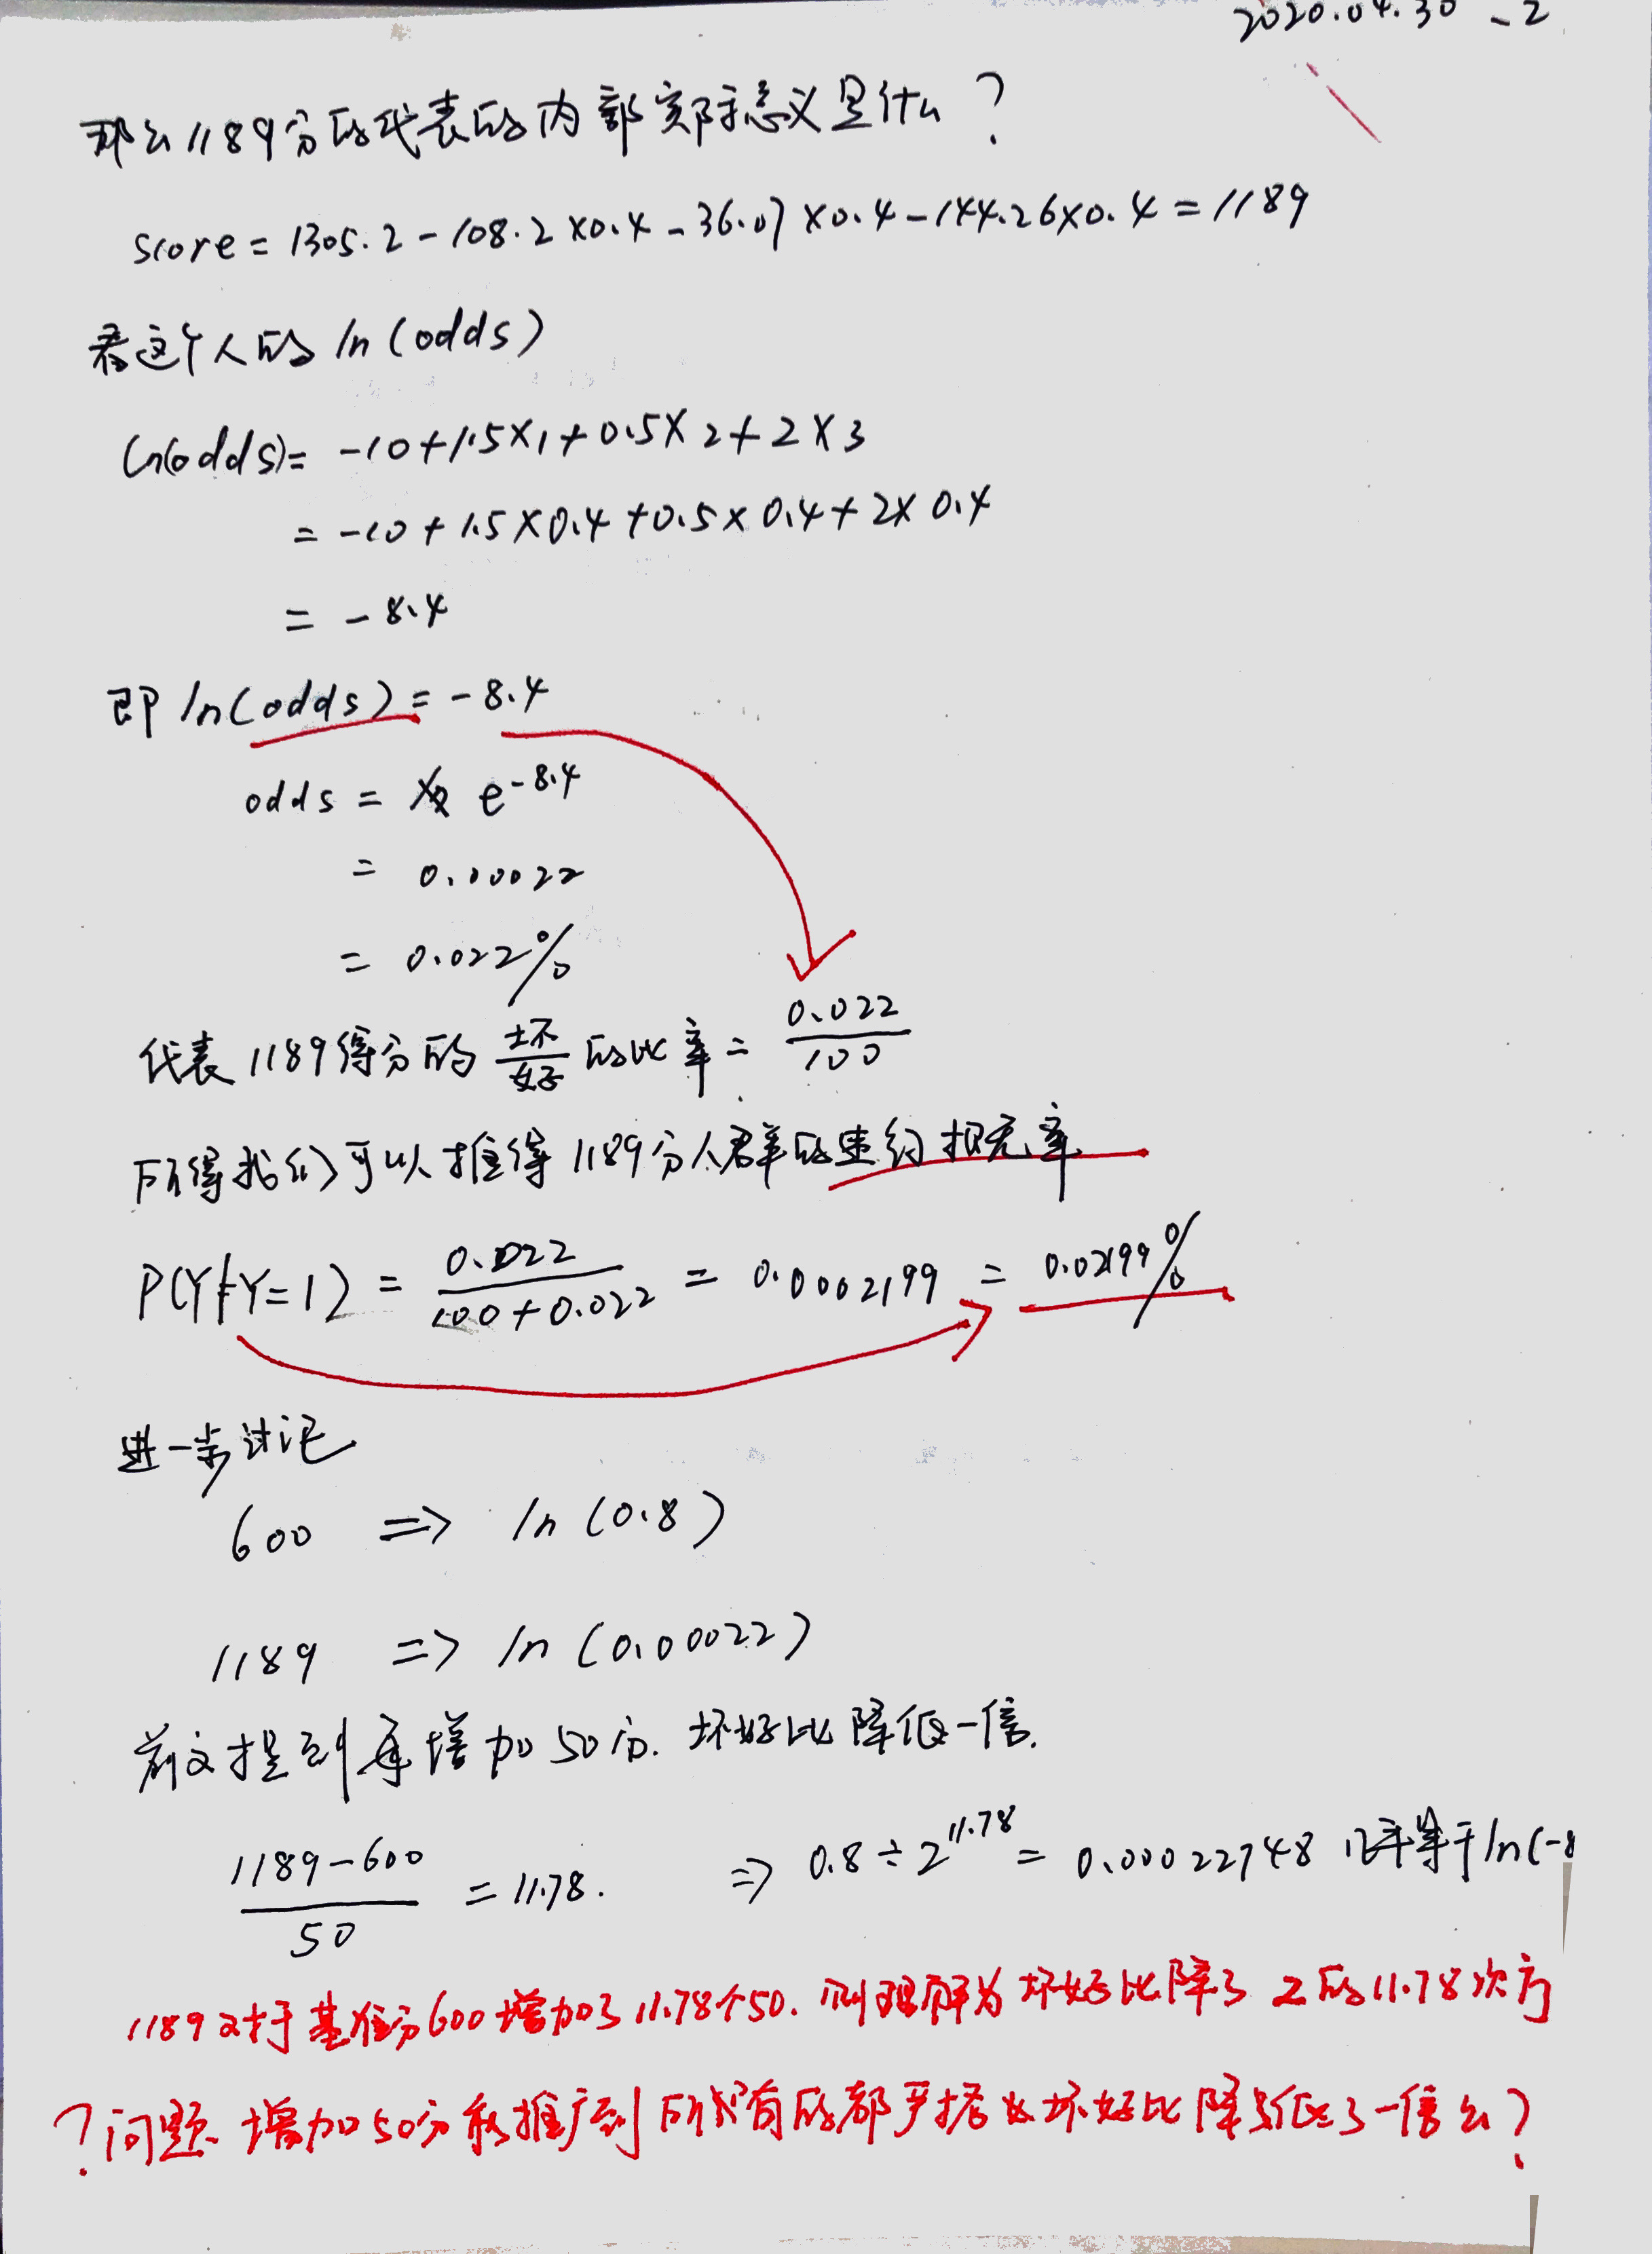 2020.04.30 -2
那么1189分的代表的内部实际意义是什么?
score = 1305.2 - 108.2 × 0.4 - 36.07 × 0.4 - 144.26 × 0.4 = 1189
看这个人的 ln(odds)
ln(odds) = -10 + 1.5 × 1 + 0.5 × 2 + 2 × 3
= -10 + 1.5 × 0.4 + 0.5 × 0.4 + 2 × 0.4
= -8.4
即 ln(odds) = -8.4
odds = e^-8.4
= 0.00022
= 0.022%
代表1189得分的 坏/好 的比率 = 0.022/100
所得我们可以推得1189分人群的违约概率
P(Y|Y=1) = 0.022/(100+0.022) = 0.0002199 = 0.02199%
进一步讨论
600 => ln(0.8)
1189 => ln(0.00022)
前文提到每增加50分. 坏好比降低一倍.
(1189-600)/50 = 11.78. => 0.8 ÷ 2^11.78 = 0.00022748 几乎等于 ln(-8
1189对于基准分600增加了11.78个50. 则理解为坏好比降了2的11.78次方
?问题. 增加50分能推广到所有的都严格如坏好比降低了一倍么?